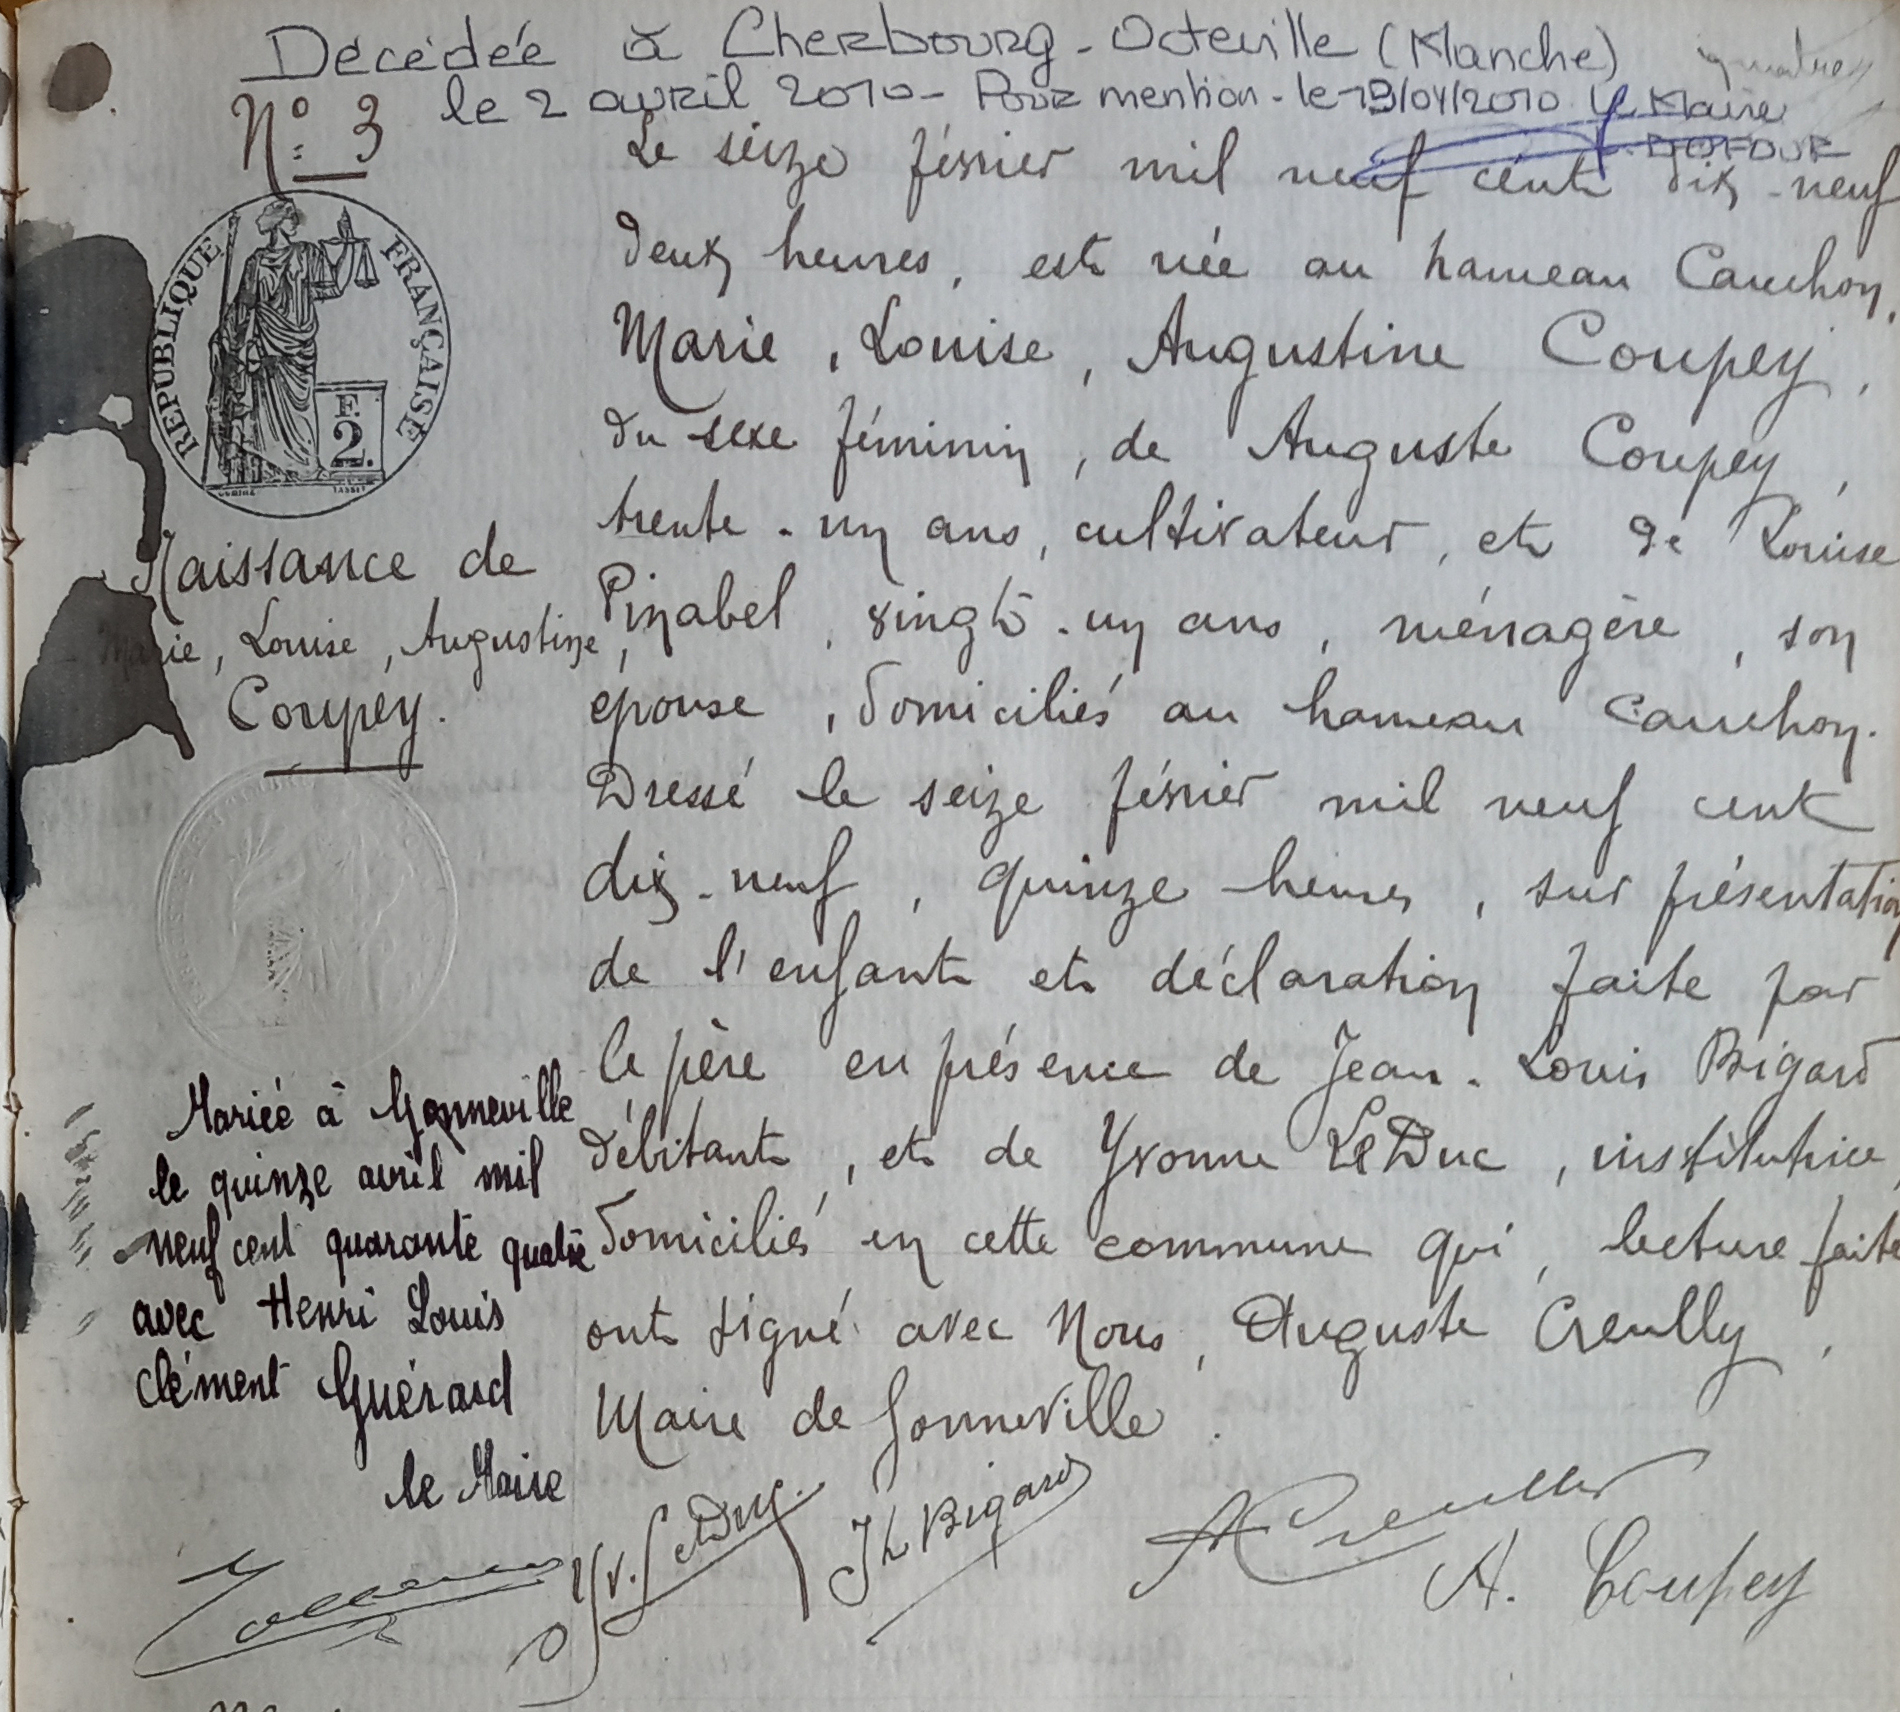 Décédée à Cherbourg-Octeville (Manche)
le 2 avril 2010 - Pour mention - le 19/04/2010 Le Maire
DUFOUR
N° 3
RÉPUBLIQUE FRANÇAISE
F.
2.
Naissance de
Marie, Louise, Augustine,
Coupey.
Mariée à Gonneville
le quinze avril mil
neuf cent quarante quatre
avec Henri Louis
Clément Guérard
le Maire
Le seize février mil neuf cent dix-neuf
deux heures, est née au hameau Cauchon,
Marie, Louise, Augustine Coupey,
du sexe féminin, de Auguste Coupey,
trente-un ans, cultivateur, et de Louise
Pinabel, vingt-un ans, ménagère, son
épouse, domiciliés au hameau Cauchon.
Dressé le seize février mil neuf cent
dix-neuf, quinze heures, sur présentation
de l'enfant et déclaration faite par
le père en présence de Jean-Louis Bigard
débitant, et de Yvonne Le Duc, institutrice,
domiciliés en cette commune qui, lecture faite
ont signé avec Nous, Auguste Creully,
Maire de Gonneville.
Yv. Le Duc. JL Bigard A Creully
A. Coupey